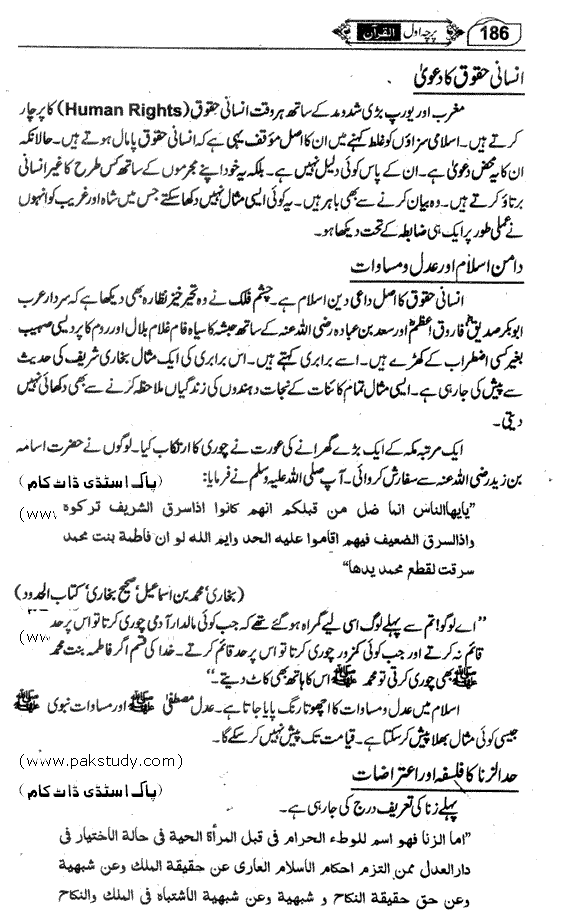 186 پرچہ اول القرآن
انسانی حقوق کا دعویٰ
مغرب اور یورپ بڑی شد و مد کے ساتھ ہر وقت انسانی حقوق (Human Rights) کا پرچار
کرتے ہیں۔ اسلامی سزاؤں کو غلط کہنے میں ان کا اصل مؤقف یہی ہے کہ انسانی حقوق پامال ہوتے ہیں۔ حالانکہ
ان کا یہ محض دعویٰ ہے۔ ان کے پاس کوئی دلیل نہیں ہے۔ بلکہ یہ خود اپنے مجرموں کے ساتھ کس طرح کا غیر انسانی
برتاؤ کرتے ہیں۔ وہ بیان کرنے سے بھی باہر ہیں۔ یہ کوئی ایسی مثال نہیں دکھا سکتے جس میں شاہ اور غریب کو انہوں
نے عملی طور پر ایک ہی ضابطہ کے تحت دیکھا ہو۔
دامن اسلام اور عدل و مساوات
انسانی حقوق کا اصل داعی دین اسلام ہے۔ چشم فلک نے وہ تحیر خیز نظارہ بھی دیکھا ہے کہ سردار عرب
ابوبکر صدیقؓ فاروق اعظمؓ اور سعد بن عبادہ رضی اللہ عنہ کے ساتھ حبشہ کا سیاہ فام غلام بلال اور روم کا پردیسی صہیب
بغیر کسی اضطراب کے کھڑے ہیں۔ اسے برابری کہتے ہیں۔ اس برابری کی ایک مثال بخاری شریف کی حدیث
سے پیش کی جا رہی ہے۔ ایسی مثال تمام کائنات کے نجات دہندوں کی زندگیاں ملاحظہ کرنے سے بھی دکھائی نہیں
دیتی۔
ایک مرتبہ مکہ کے ایک بڑے گھرانے کی عورت نے چوری کا ارتکاب کیا۔ لوگوں نے حضرت اسامہ
بن زید رضی اللہ عنہ سے سفارش کروائی۔ آپ صلی اللہ علیہ وسلم نے فرمایا: (پاک اسٹڈی ڈاٹ کام)
”یایھاالناس انما ضل من قبلکم انھم کانوا اذاسرق الشریف ترکوہ (www.
واذالسرق الضعیف فیھم اقاموا علیہ الحد وایم اللہ لو ان فاطمة بنت محمد
سرقت لقطع محمد یدھا“
(بخاری، محمد بن اسماعیل، صحیح بخاری، کتاب الحدود)
”اے لوگو! تم سے پہلے لوگ اسی لیے گمراہ ہو گئے تھے کہ جب کوئی مالدار آدمی چوری کرتا تو اس پر حد (www.
قائم نہ کرتے اور جب کوئی کمزور چوری کرتا تو اس پر حد قائم کرتے۔ خدا کی قسم اگر فاطمہ بنت محمد
ﷺ بھی چوری کرتی تو محمد ﷺ اس کا ہاتھ بھی کاٹ دیتے۔“
اسلام میں عدل و مساوات کا اچھوتا رنگ پایا جاتا ہے۔ عدل مصطفیٰ ﷺ اور مساوات نبوی ﷺ
جیسی کوئی مثال بھلا پیش کر سکتا ہے۔ قیامت تک پیش نہیں کر سکے گا۔
(www.pakstudy.com)
حد الزنا کا فلسفہ اور اعتراضات
(پاک اسٹڈی ڈاٹ کام)
پہلے زنا کی تعریف درج کی جا رہی ہے۔
”اما الزنا فھو اسم للوطء الحرام فی قبل المرأة الحیة فی حالة الأختیار فی
دارالعدل ممن التزم احکام الأسلام العاری عن حقیقة الملک وعن شبھیة
وعن حق حقیقة النکاح و شبھیة وعن شبھیة الأشتباہ فی الملک والنکاح